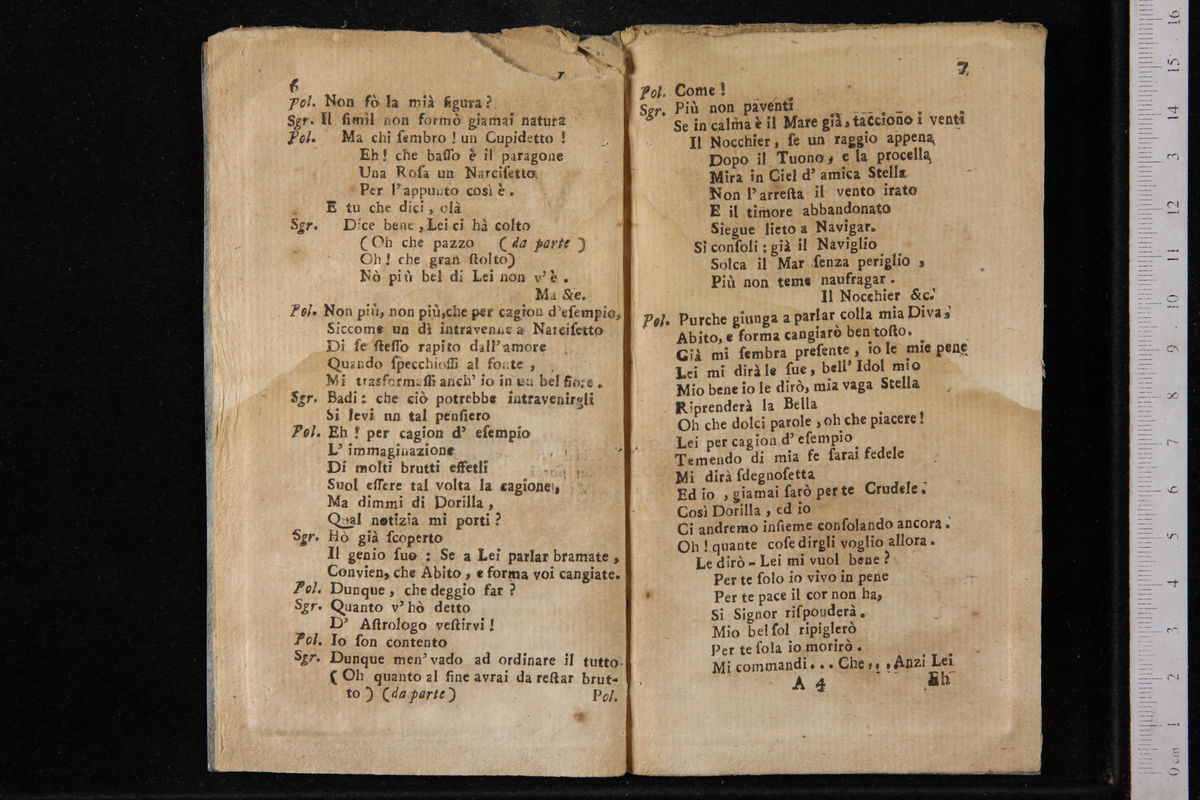 6
Pol. Non fò la mià figura?
Sgr. Il simil non formò giamai natura
Pol. Ma chi sembro! un Cupidetto!
Eh! che basso è il paragone
Una Rosa un Narcisetto
Per l'appunto così è.
E tu che dici, olà
Sgr. Dice bene, Lei ci hà colto
(Oh che pazzo (da parte)
Oh! che gran stolto)
Nò più bel di Lei non v'è.
Ma &c.
Pol. Non più, non più, che per cagion d'esempio,
Siccome un dì intravenne a Narcisetto
Di se stesso rapito dall'amore
Quando specchiossi al fonte,
Mi trasformassi anch' io in un bel fiore.
Sgr. Badi: che ciò potrebbe intravenirgli
Si levi un tal pensiero
Pol. Eh! per cagion d' esempio
L' immaginazione
Di molti brutti effetli
Suol essere tal volta la cagione,
Ma dimmi di Dorilla,
Qual notizia mi porti?
Sgr. Hò già scoperto
Il genio suo: Se a Lei parlar bramate,
Convien, che Abito, e forma voi cangiate.
Pol. Dunque, che deggio far?
Sgr. Quanto v' hò detto
D' Astrologo vestirvi!
Pol. Io son contento
Sgr. Dunque men' vado ad ordinare il tutto
(Oh quanto al fine avrai da restar brut-
to) (da parte)
Pol.
7
Pol. Come!
Sgr. Più non paventi
Se in calma è il Mare già, tacciono i venti
Il Nocchier, se un raggio appena
Dopo il Tuono, e la procella
Mira in Ciel d' amica Stella
Non l'arresta il vento irato
E il timore abbandonato
Siegue lieto a Navigar.
Si consoli: già il Naviglio
Solca il Mar senza periglio,
Più non teme naufragar.
Il Nocchier &c.
Pol. Purche giunga a parlar colla mia Diva,
Abito, e forma cangiarò ben tosto.
Già mi sembra presente, io le mie pene
Lei mi dirà le sue, bell' Idol mio
Mio bene io le dirò, mia vaga Stella
Riprenderà la Bella
Oh che dolci parole, oh che piacere!
Lei per cagion d' esempio
Temendo di mia fe sarai fedele
Mi dirà sdegnosetta
Ed io, giamai sarò per te Crudele.
Così Dorilla, ed io
Ci andremo insieme consolando ancora.
Oh! quante cose dirgli voglio allora.
Le dirò - Lei mi vuol bene?
Per te solo io vivo in pene
Per te pace il cor non ha,
Si Signor risponderà.
Mio bel sol ripiglerò
Per te sola io morirò.
Mi commandi... Che,,, Anzi Lei
A 4
Eh